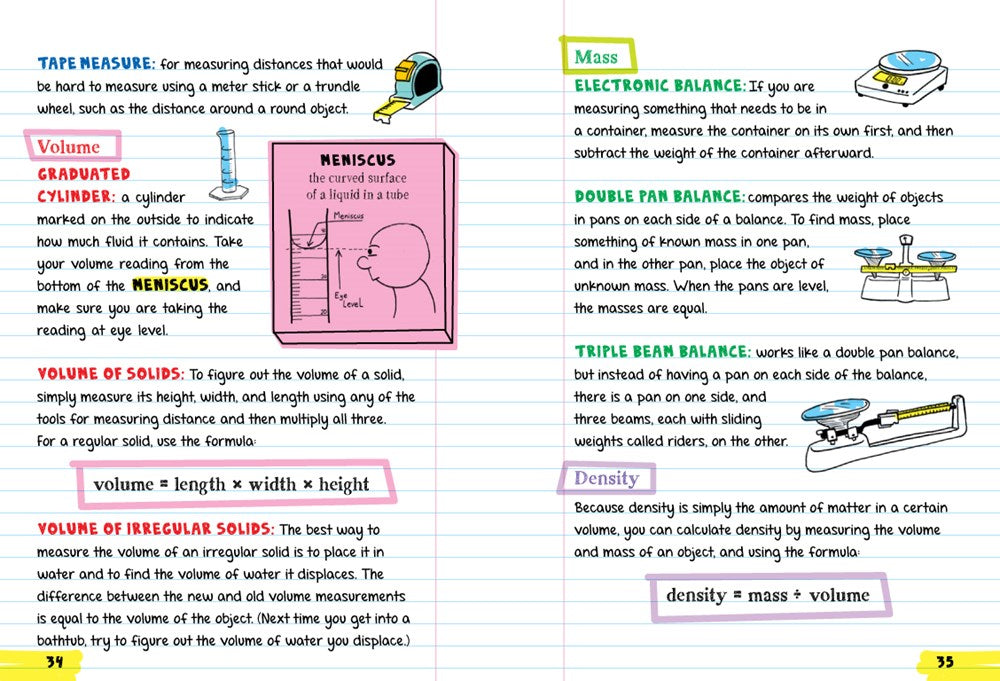 TAPE MEASURE: for measuring distances that would
be hard to measure using a meter stick or a trundle
wheel, such as the distance around a round object.
Volume
GRADUATED
CYLINDER: a cylinder
marked on the outside to indicate
how much fluid it contains. Take
your volume reading from the
bottom of the MENISCUS, and
make sure you are taking the
reading at eye level.
MENISCUS
the curved surface
of a liquid in a tube
Meniscus
30
Eye
Level
20
VOLUME OF SOLIDS: To figure out the volume of a solid,
simply measure its height, width, and length using any of the
tools for measuring distance and then multiply all three.
For a regular solid, use the formula:
volume = length × width × height
VOLUME OF IRREGULAR SOLIDS: The best way to
measure the volume of an irregular solid is to place it in
water and to find the volume of water it displaces. The
difference between the new and old volume measurements
is equal to the volume of the object. (Next time you get into a
bathtub, try to figure out the volume of water you displace.)
34
Mass
ELECTRONIC BALANCE: If you are
measuring something that needs to be in
a container, measure the container on its own first, and then
subtract the weight of the container afterward.
DOUBLE PAN BALANCE: compares the weight of objects
in pans on each side of a balance. To find mass, place
something of known mass in one pan,
and in the other pan, place the object of
unknown mass. When the pans are level,
the masses are equal.
TRIPLE BEAM BALANCE: works like a double pan balance,
but instead of having a pan on each side of the balance,
there is a pan on one side, and
three beams, each with sliding
weights called riders, on the other.
Density
Because density is simply the amount of matter in a certain
volume, you can calculate density by measuring the volume
and mass of an object, and using the formula:
density = mass ÷ volume
35